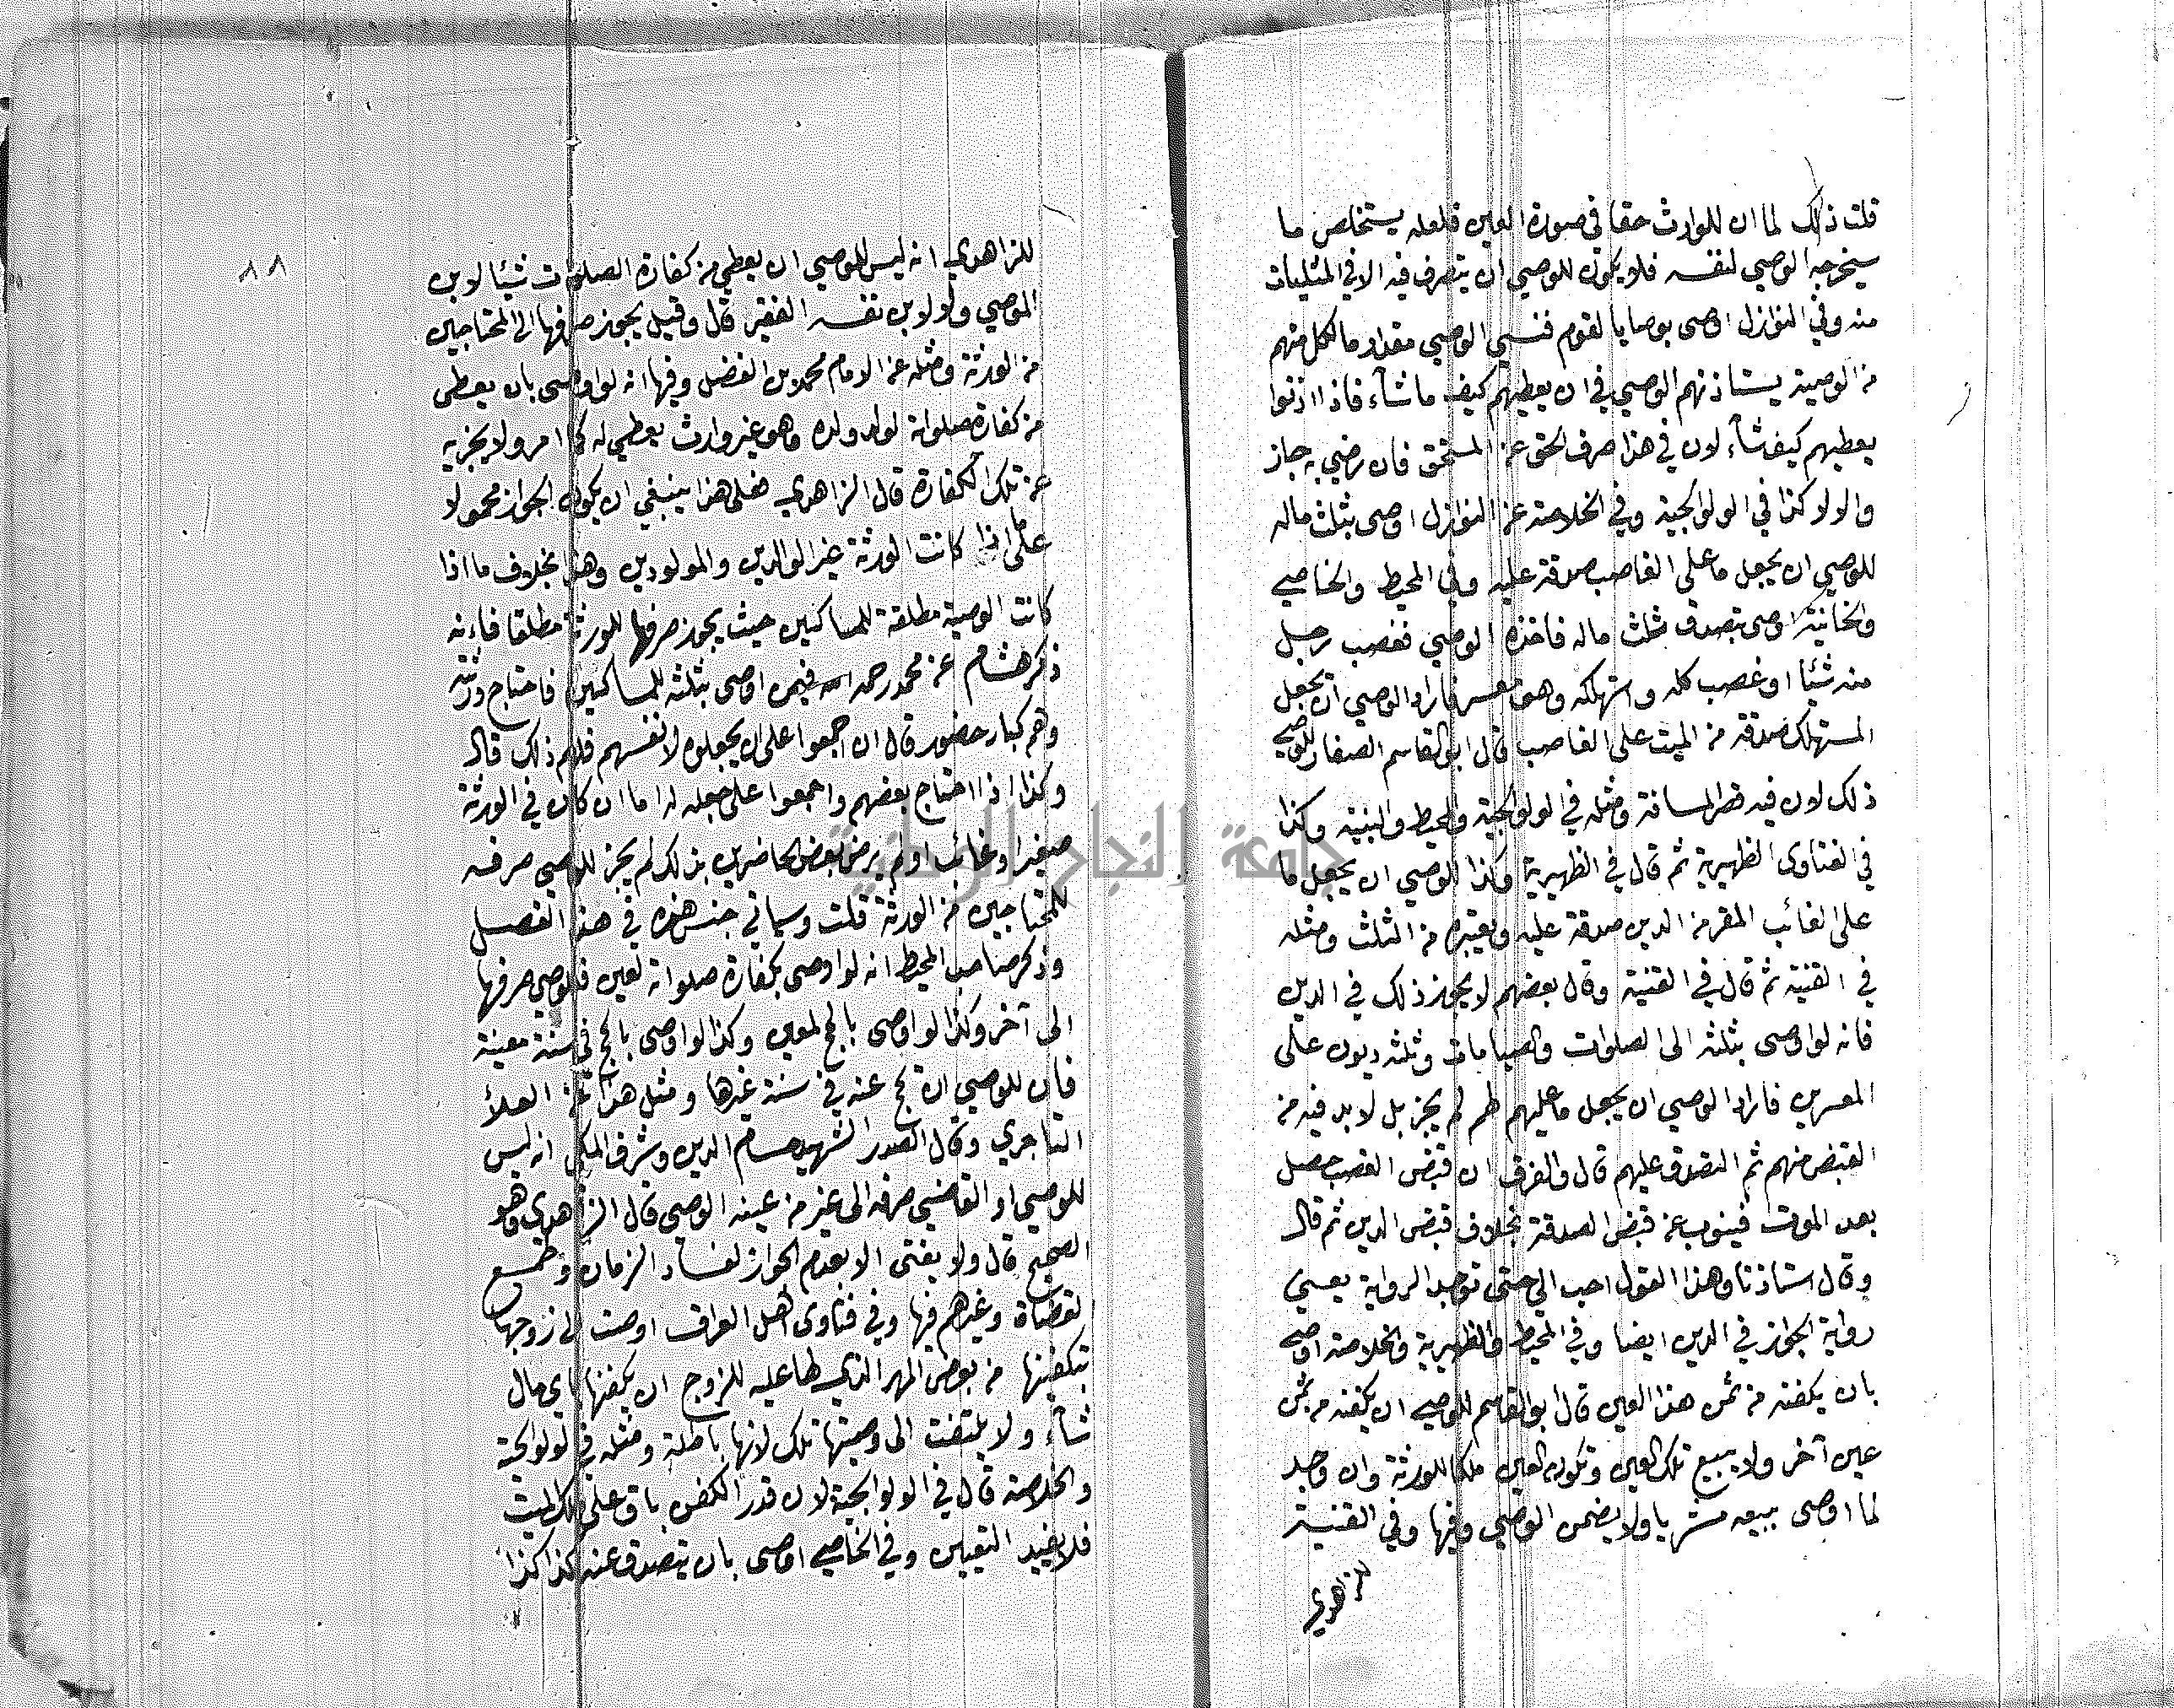 قلت ذلك لما ان للوارث حقا في صورة العين فلعله يستخلص ما
سيخرجه الوصي لنفسه فلا يكون للوصي ان يتصرف فيه الا في المثليات
منه وفي النوازل اوصى بوصايا لقوم فنسي الوصي مقدار ما لكل منهم
من الوصية يستاذنهم الوصي في ان يعطيهم كيف ما شآء فاذا اذنوا
يعطيهم كيف شآء لان في هذا صرف الحق عن المستحق فان رضي به جاز
والا لا كذا في الولوالجية وفي الخلاصة عن النوازل اوصى بثلث ماله
للوصي ان يجعل ما على الغاصب صدقة عليه وفي المحيط والخاصي
والخانية اوصى بتصدق ثلث ماله فاخذه الوصي فغصب رجل
منه شيئا او غصب كله واستهلكه وهو معسر فاراد الوصي ان يجعل
المستهلك صدقة من الميت على الغاصب قال ابو القاسم الصفار للوصي
ذلك لان فيه قطر المسافة ومثله في الولوالجية والمحيط والبنية وكذا
في الفتاوى الظهيرية ثم قال في الظهيرية وكذا للوصي ان يجعل ما
على الغائب المقر من الدين صدقة عليه ويعتبره من الثلث ومثله
في القنية ثم قال في القنية وقال بعضهم لا يجوز ذلك في الدين
فانه لو اوصى بثلثه الى الصلوات والصيامات وثلثه ديون على
المعسرين فاراد الوصي ان يجعل ما عليهم لهم لم يجز بل لا بد فيه من
القبض منهم ثم التصدق عليهم قال والفرق ان قبض الغصب حصل
بعد الموت فينوب عن قبض الصدقة بخلاف قبض الدين ثم قال
وقال استاذنا وهذا القول احب الي حتى توجد الرواية يعني
رواية الجواز في الدين ايضا وفي المحيط والظهيرية والخلاصة اوصى
بان يكفنه من ثمن هذا العين قال ابو القاسم للوصي ان يكفنه من ثمن
عين آخر ولا يبيع تلك العين وتكون العين ملكا للورثة وان وجد
لما اوصى ببيعه مشتريا ولا يضمن الوصي وفيها وفي القنية
للزاهدي
٨٨
للزاهدي انه ليس للوصي ان يعطي من كفارة الصلوات شيئا لابن
الموصي ولا لابن نفسه الفقير قال وقيل يجوز صرفها الى المحتاجين
من الورثة ومثله عن الامام محمد بن الفضل وفيها انه لو اوصى بان يعطى
من كفارة صلواته لولد ولده وهو غير وارث يعطي له كما امر ولا يجزيه
عن تلك الكفارة قال الزاهدي فعلى هذا ينبغي ان يكون الجواز محمولا
على ما اذا كانت الورثة غير الوالدين والمولودين وهذا بخلاف ما اذا
كانت الوصية مطلقة للمساكين حيث يجوز صرفها للورثة مطلقا فانه
ذكر هشام عن محمد رحمه الله فيمن اوصى بثلثه للمساكين فاحتاج ورثته
وهم كبار حضور قال ان اجمعوا على ان يجعلوه لانفسهم فلهم ذلك قال
وكذا اذا احتاج بعضهم واجمعوا على جعله له اما ان كان في الورثة
صغير او غائب او لم يرض بعض الحاضرين بذلك لم يجز للوصي صرفه
للمحتاجين من الورثة قلت وسياتي جنس هذه في هذا الفصل
وذكر صاحب المحيط انه لو اوصى بكفارة صلواته لمعين فللوصي صرفها
الى آخر وكذا لو اوصى بالحج لمعين وكذا لو اوصى بالحج في سنة معينة
فان للوصي ان يحج عنه في سنة غيرها ومثل هذا عن العلأ
التاجري وقال الصدر الشهيد حسام الدين وشرف المكي انه ليس
للوصي او القاضي صرفه الى غير من عينه الوصي قال الزاهدي وهو
الصحيح قال ولا يفتى الا بعدم الجواز لفساد الزمان وطمع
القضاة وغيرهم فيها وفي فتاوى اهل العراق اوصت الى زوجها
بتكفينها من بعض المهر الذي لها عليه للزوج ان يكفنها باي مال
شآء ولا يلتفت الى وصيتها تلك لانها باطلة ومثله في الولوالجية
والخلاصة قال في الولوالجية لان قدر الكفن باق على ملك الميت
فلا يفيد التعيين وفي الخاصي اوصى بان يتصدق عنه كذا كذا
جامعة النجاح الوطنية